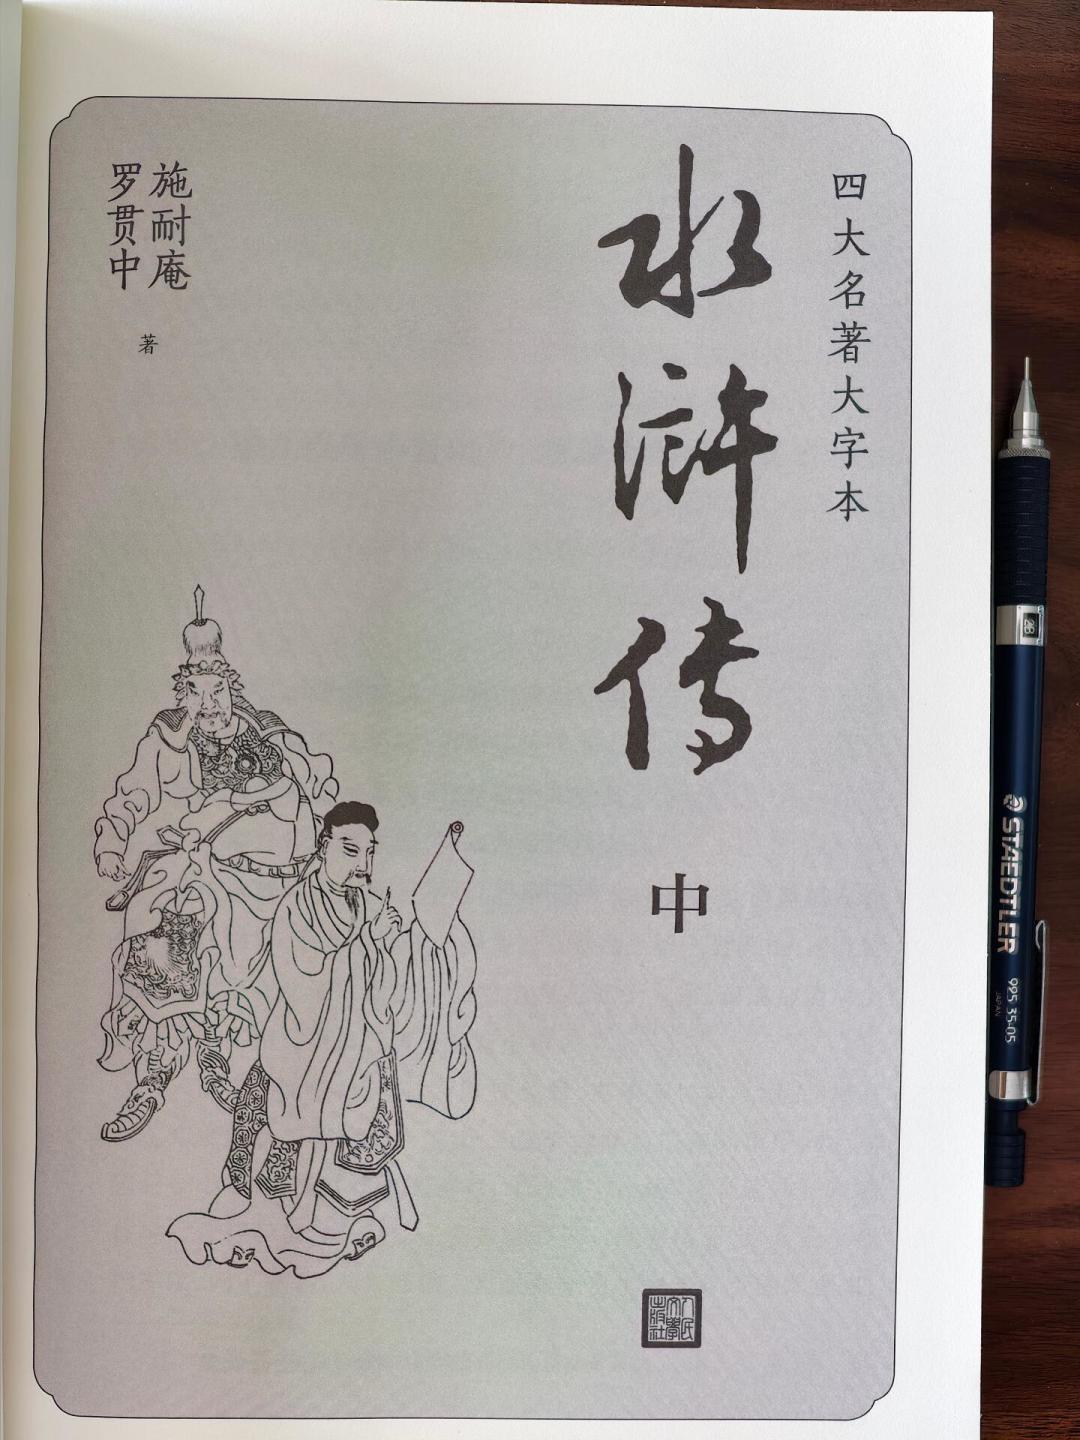 四大名著大字本
水浒传
中
施耐庵
罗贯中
著
人民
文學
出版社
2B
STAEDTLER
925 35-05
JAPAN